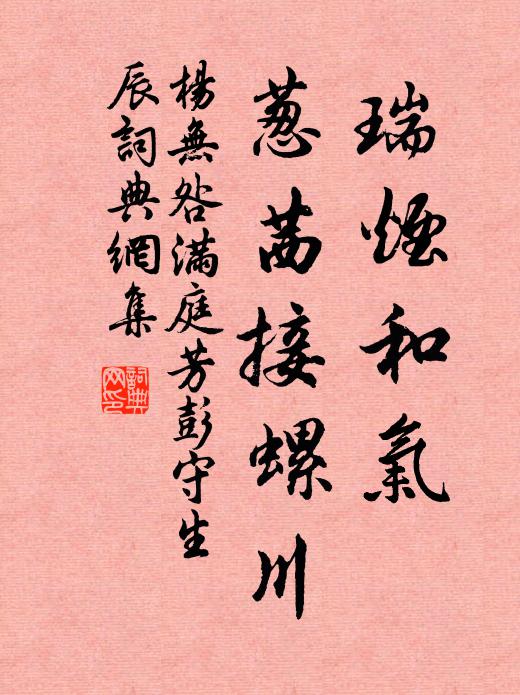 瑞煙和氣
蔥茜接螺川
楊無咎滿庭芳彭守生
辰詞典網集
詞典
网印